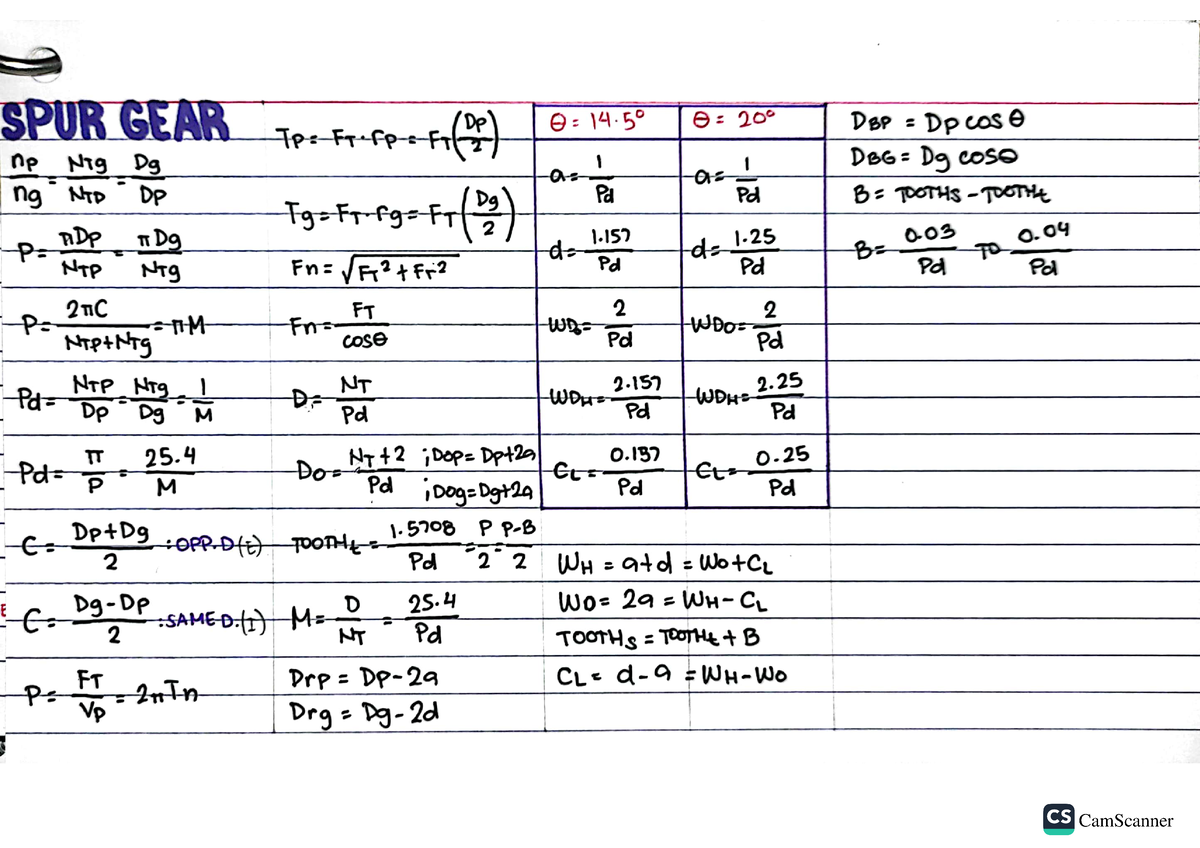 SPUR GEAR
np/ng = NTg/NTP = Dg/DP
P = πDp/NTP = πDg/NTg
P = 2πC/(NTP+NTg) = πM
Pd = NTP/Dp = NTg/Dg = 1/M
Pd = π/P = 25.4/M
C = (Dp+Dg)/2 : OPP. D (E)
C = (Dg-Dp)/2 : SAME D. (I)
P = FT/Vp = 2πTn
Tp = FT · rp = FT (Dp/2)
Tg = FT · rg = FT (Dg/2)
Fn = √(FT² + Fr²)
Fn = FT/cosθ
D = NT/Pd
Do = (NT+2)/Pd ; Dop = Dp+2a
; Dog = Dg+2a
TOOTHt = 1.5708/Pd = P/2 = (P-B)/2
M = D/NT = 25.4/Pd
Drp = Dp - 2a
Drg = Dg - 2d
θ = 14.5°
a = 1/Pd
d = 1.157/Pd
WDo = 2/Pd
WDH = 2.157/Pd
CL = 0.157/Pd
θ = 20°
a = 1/Pd
d = 1.25/Pd
WDo = 2/Pd
WDH = 2.25/Pd
CL = 0.25/Pd
WH = a+d = Wo+CL
Wo = 2a = WH - CL
TOOTHs = TOOTHt + B
CL = d - a = WH - Wo
DBP = Dp cos θ
DBG = Dg cosθ
B = TOOTHs - TOOTHt
B = 0.03/Pd TO 0.04/Pd
CS CamScanner